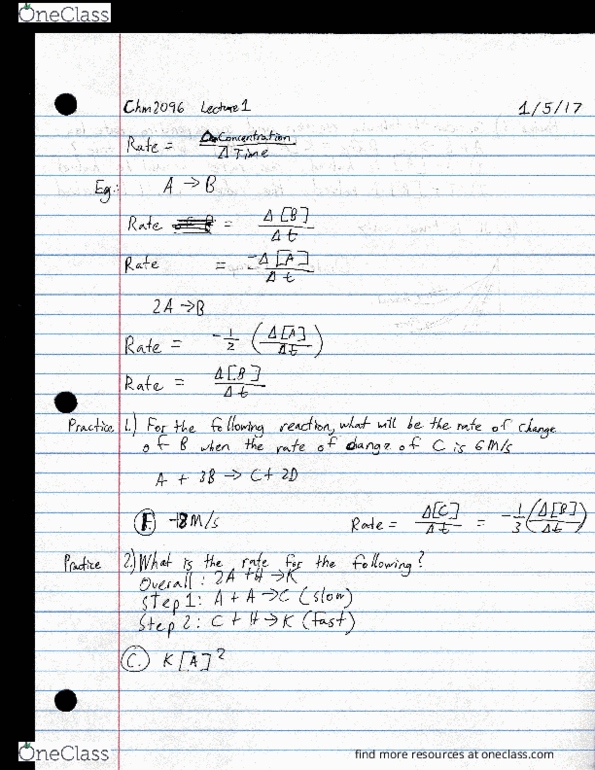 OneClass
Chm2096 Lecture 1 1/5/17
Rate = ΔConcentration / ΔTime
Eg: A → B
Rate = Δ[B] / Δt
Rate = -Δ[A] / Δt
2A → B
Rate = -1/2 (Δ[A] / Δt)
Rate = Δ[B] / Δt
Practice 1.) For the following reaction, what will be the rate of change
of B when the rate of change of C is 6M/s
A + 3B → C + 2D
F. -18M/s Rate = Δ[C] / Δt = -1/3 (Δ[B] / Δt)
Practice 2.) What is the rate for the following?
Overall: 2A + H → K
Step 1: A + A → C (slow)
Step 2: C + H → K (fast)
C. K[A]²
OneClass find more resources at oneclass.com